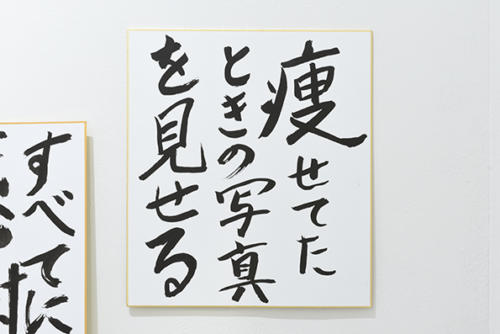 痩せてた
ときの写真
を見せる
すべてに